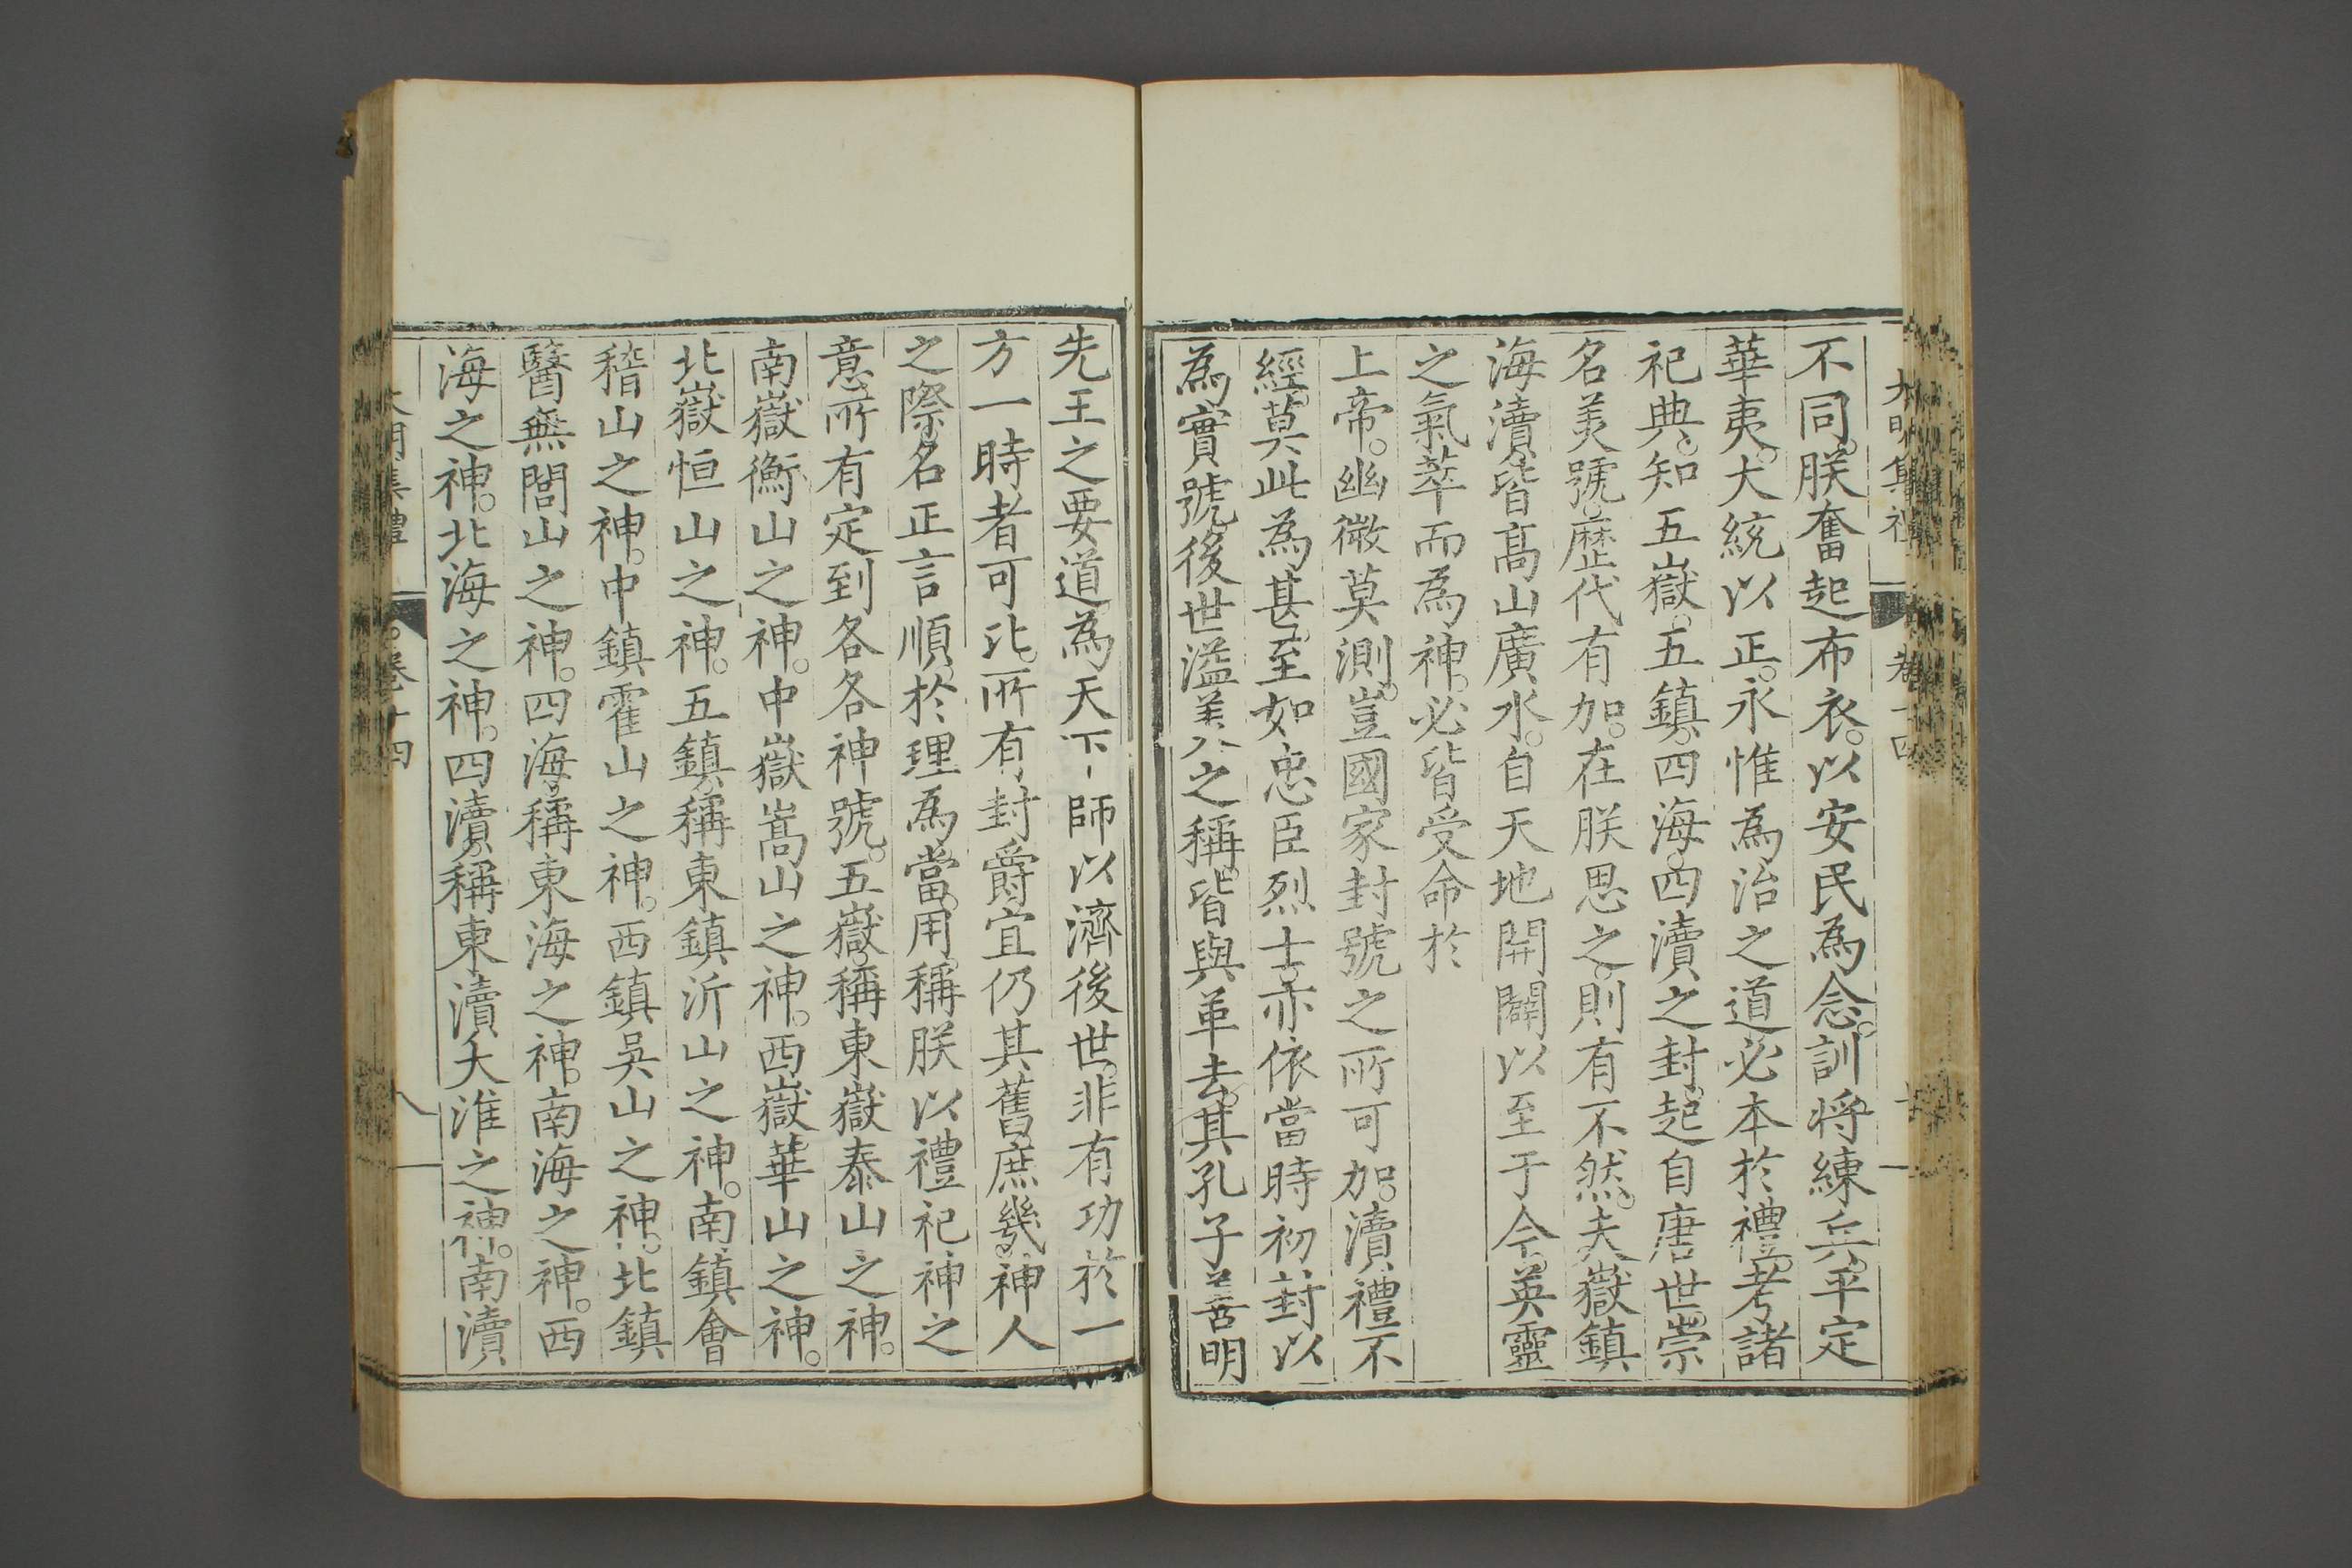 大明集禮 卷十四
不同。朕奮起布衣。以安民為念。訓將練兵。平定
華夷。大統以正。永惟為治之道必本於禮。考諸
祀典。知五嶽。五鎮。四海。四瀆之封。起自唐世。崇
名美號。歷代有加。在朕思之。則有不然。夫嶽鎮
海瀆。皆高山廣水。自天地開闢以至于今。英靈
之氣萃而為神。必皆受命於
上帝。幽微莫測。豈國家封號之所可加。瀆禮不
經。莫此為甚。至如忠臣烈士。亦依當時初封以
為實號。後世溢美之稱。皆與革去。其孔子善明
先王之要道為天下師以濟後世。非有功於一
方一時者可比。所有封爵宜仍其舊庶幾。神人
之際。名正言順。於理為當。用。稱朕以禮祀神之
意。所有定到各各神號。五嶽。稱東嶽泰山之神。
南嶽衡山之神。中嶽嵩山之神。西嶽華山之神。
北嶽恒山之神。五鎮。稱東鎮沂山之神。南鎮會
稽山之神。中鎮霍山之神。西鎮吳山之神。北鎮
醫無閭山之神。四海。稱東海之神。南海之神。西
海之神。北海之神。四瀆。稱東瀆大淮之神。南瀆
大明集禮 卷十四